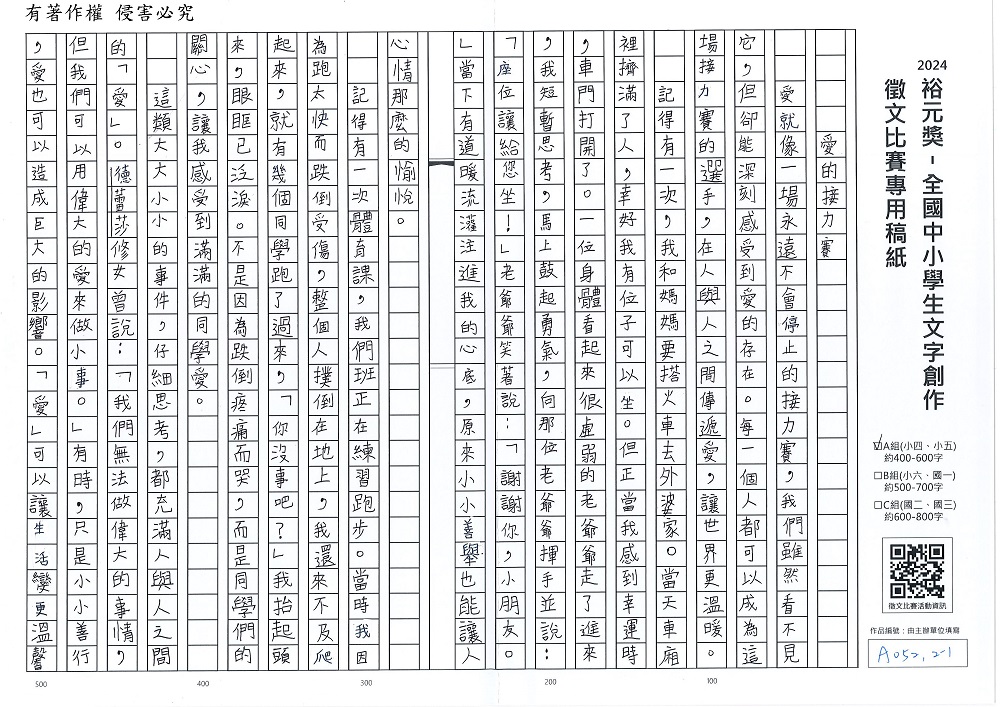 有著作權 侵害必究
2024
裕元獎-全國中小學生文字創作
徵文比賽專用稿紙
☑A組(小四、小五)
約400-600字
□B組(小六、國一)
約500-700字
□C組(國二、國三)
約600-800字
徵文比賽活動資訊
作品編號：由主辦單位填寫
A052,2-1
愛的接力賽
愛就像一場永遠不會停止的接力賽，我們雖然看不見
它，但卻能深刻感受到愛的存在。每一個人都可以成為這
場接力賽的選手，在人與人之間傳遞愛，讓世界更溫暖。
記得有一次，我和媽媽要搭火車去外婆家。當天車廂
裡擠滿了人，幸好我有位子可以坐。但正當我感到幸運時
，車門打開了。一位身體看起來很虛弱的老爺爺走了進來
，我短暫思考，馬上鼓起勇氣，向那位老爺爺揮手並說：
「座位讓給您坐！」老爺爺笑著說：「謝謝你，小朋友。
」當下有道暖流灌注進我的心底，原來小小善舉也能讓人
心情那麼的愉悅。
記得有一次體育課，我們班正在練習跑步。當時我因
為跑太快而跌倒受傷，整個人撲倒在地上，我還來不及爬
起來，就有幾個同學跑了過來，「你沒事吧？」我抬起頭
來，眼眶已泛淚。不是因為跌倒疼痛而哭，而是同學們的
關心，讓我感受到滿滿的同學愛。
這類大大小小的事件，仔細思考，都充滿人與人之間
的「愛」。德蕾莎修女曾說：「我們無法做偉大的事情，
但我們可以用偉大的愛來做小事。」有時，只是小小善行
，愛也可以造成巨大的影響。「愛」可以讓生活變更溫馨
100
200
300
400
500